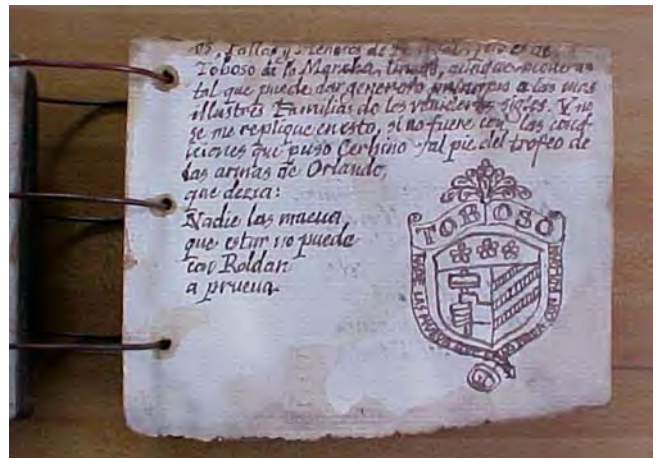 Toboso de la Mancha, linage, aunque moderno
tal que puede dar generoso principio a las mas
illustres Familias de los venideros siglos. Y no
se me replique en esto, si no fuere con las cond-
iciones que puso Cerbino al pie del trofeo de
las armas de Orlando,
que dezia:
Nadie las mueua
que estar no pueda
con Roldan
a prueua
TOBOSO